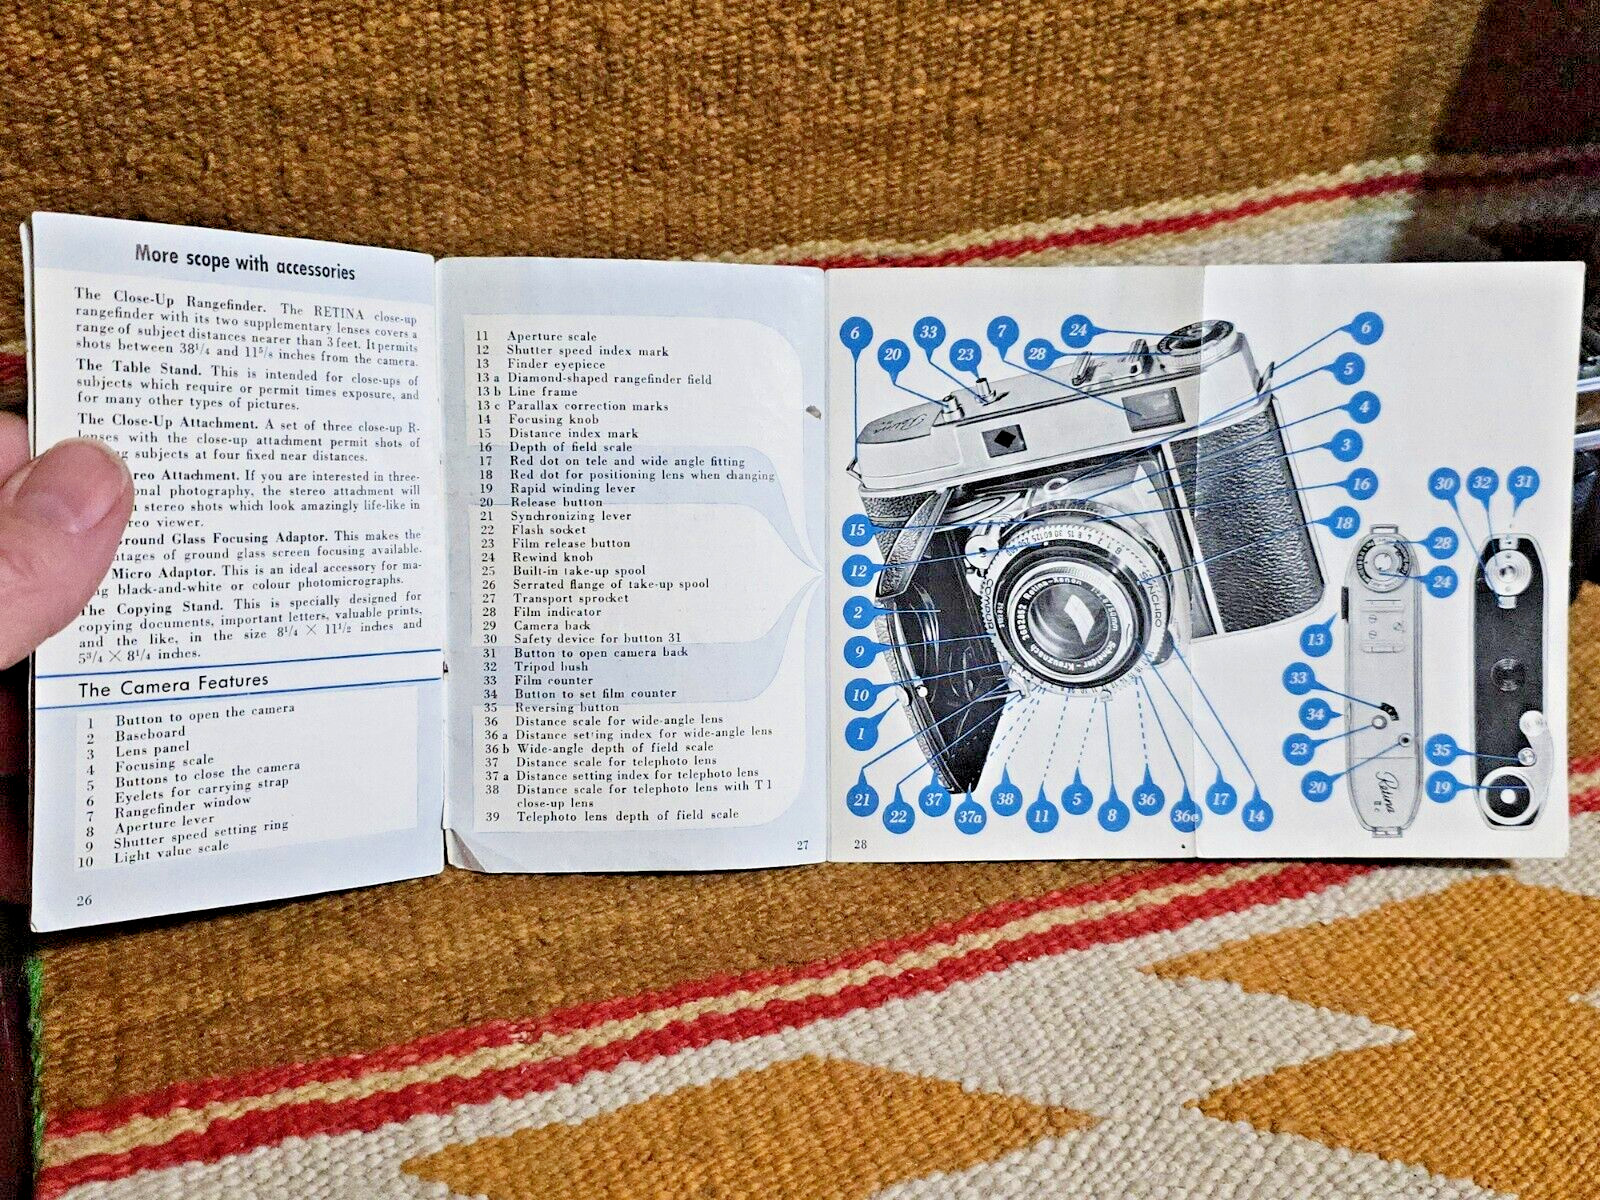 More scope with accessories
The Close-Up Rangefinder. The RETINA close-up
rangefinder with its two supplementary lenses covers a
range of subject distances nearer than 3 feet. It permits
shots between 38¹/₄ and 11⁵/₈ inches from the camera.
The Table Stand. This is intended for close-ups of
subjects which require or permit times exposure, and
for many other types of pictures.
The Close-Up Attachment. A set of three close-up R-
lenses with the close-up attachment permit shots of
subjects at four fixed near distances.
Attachment. If you are interested in three-
photography, the stereo attachment will
stereo shots which look amazingly life-like in
viewer.
Ground Glass Focusing Adaptor. This makes the
of ground glass screen focusing available.
Micro Adaptor. This is an ideal accessory for ma-
black-and-white or colour photomicrographs.
The Copying Stand. This is specially designed for
copying documents, important letters, valuable prints,
and the like, in the size 8¹/₄ × 11¹/₂ inches and
5³/₄ × 8¹/₄ inches.
The Camera Features
1 Button to open the camera
2 Baseboard
3 Lens panel
4 Focusing scale
5 Buttons to close the camera
6 Eyelets for carrying strap
7 Rangefinder window
8 Aperture lever
9 Shutter speed setting ring
10 Light value scale
26
11 Aperture scale
12 Shutter speed index mark
13 Finder eyepiece
13 a Diamond-shaped rangefinder field
13 b Line frame
13 c Parallax correction marks
14 Focusing knob
15 Distance index mark
16 Depth of field scale
17 Red dot on tele and wide angle fitting
18 Red dot for positioning lens when changing
19 Rapid winding lever
20 Release button
21 Synchronizing lever
22 Flash socket
23 Film release button
24 Rewind knob
25 Built-in take-up spool
26 Serrated flange of take-up spool
27 Transport sprocket
28 Film indicator
29 Camera back
30 Safety device for button 31
31 Button to open camera back
32 Tripod bush
33 Film counter
34 Button to set film counter
35 Reversing button
36 Distance scale for wide-angle lens
36 a Distance setting index for wide-angle lens
36 b Wide-angle depth of field scale
37 Distance scale for telephoto lens
37 a Distance setting index for telephoto lens
38 Distance scale for telephoto lens with T I
close-up lens
39 Telephoto lens depth of field scale
27
6 20 33 23 7 28 24 6
5
4
3
16
18
15
12
2
9
10
1
21 22 37 37a 38 11 5 8 36 36a 17 14
Retina
COMPUR
SYNCHRO
Retina-Xenon
Schneider-Kreuznach
28
30 32 31
28
24
13
33
34
23
20
35
19
Retina